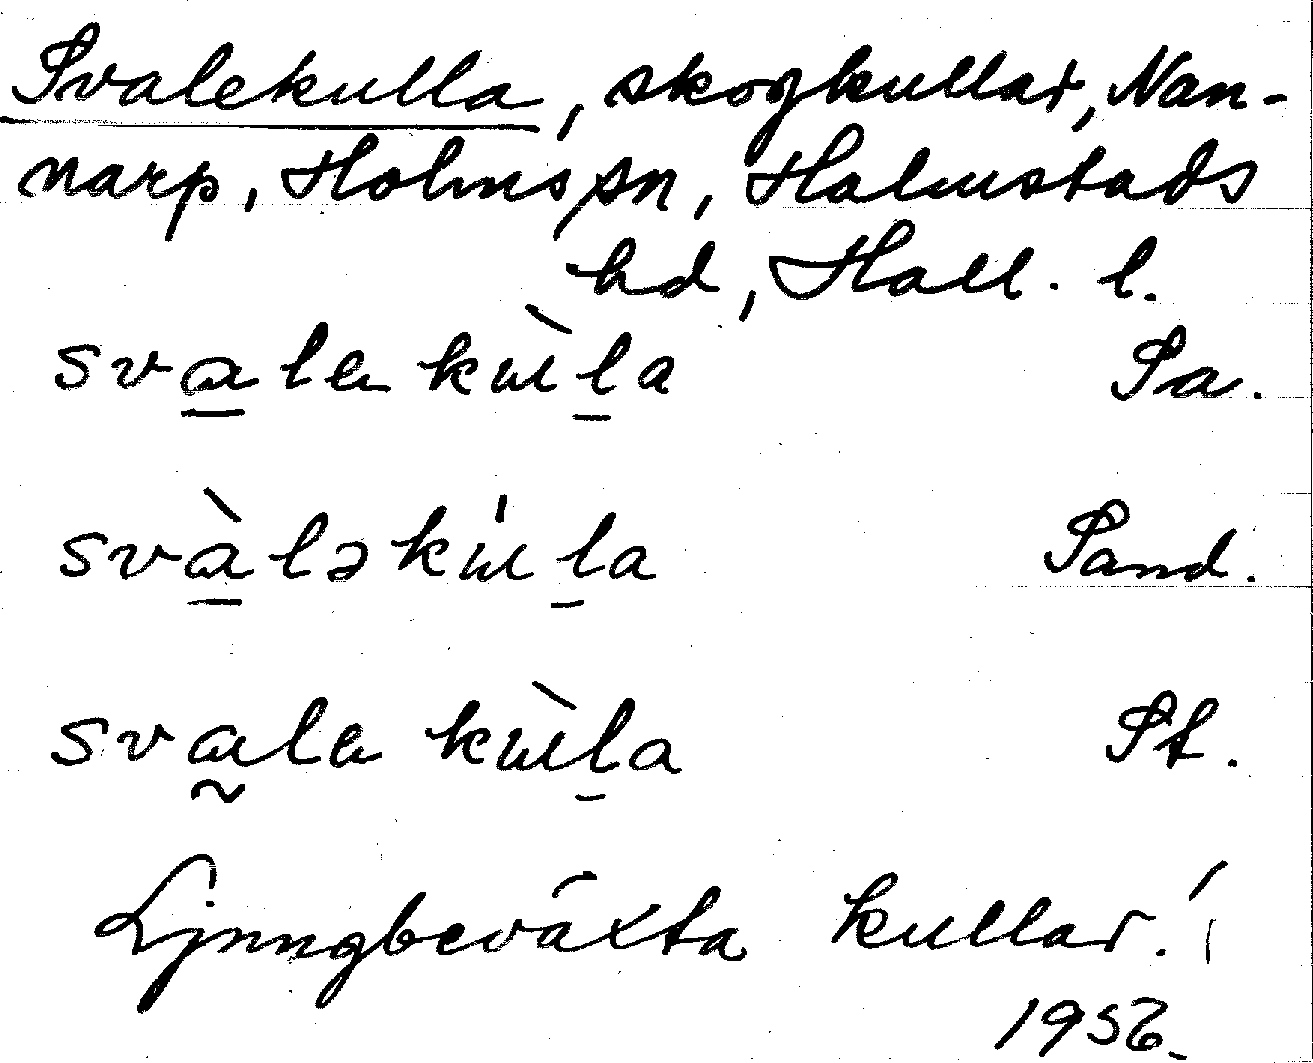 Svalekulla, skogkullar, Nan-
narp, Holms sn, Halmstads
hd, Hall. l.
svalekùla Sa.
svàləkúla Sand.
svalekùla St.
Ljungbeväxta kullar.
1956.